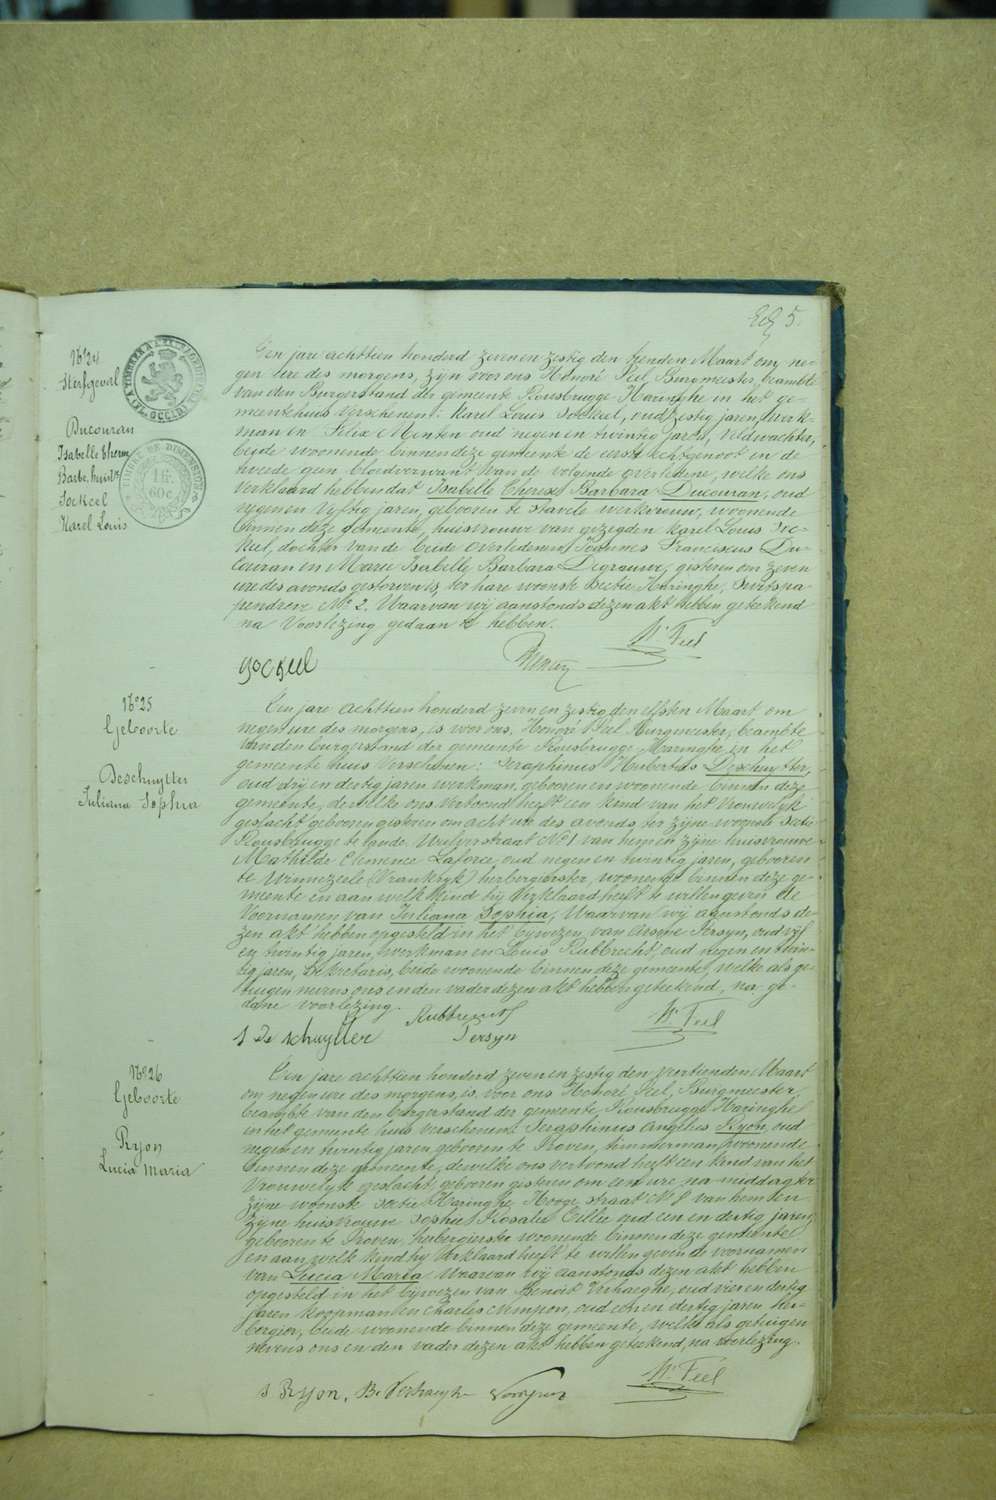 5.
N° 24
Sterfgeval
Ducouran
Isabelle Therese
Barbe, huisv.
Sockeel
Karel Louis
TIMBRE DE DIMENSION
1 fr.
60c
Een jare achttien honderd zeven en zestig den tienden Maart om ne-
gen ure des morgens, zyn voor ons Honoré Feel Burgmeester, beambte
van den Burgerstand der gemeente Rousbrugge-Haringhe in het ge-
meentehuis verschenen: Karel Louis Sockeel, oud zestig jaren, werk-
man en Felix Menten oud negen en twintig jaren, veldwachter,
beide woonende binnen deze gemeente de eerste echtgenoot en de
tweede geen bloedverwant van de volgende overledene, welke ons
verklaard hebben dat Isabelle Therese Barbara Ducouran, oud
negen en vyftig jaren, geboren te Stavele werkvrouw, woonende
binnen deze gemeente, huisvrouwe van gezegden Karel Louis Soc-
keel, dochter van de beide overledenen Joannes Franciscus Du-
couran en Marie Isabelle Barbara Degrauwe, gisteren om zeven
ure des avonds gestorven is, ter hare woonst sectie Haringhe,
N° 2. Waarvan wy aanstonds dezen akt hebben geteekend
na voorlezing gedaan te hebben.
H. Feel
Socquel
N° 25
Geboorte
Deschuytter
Juliana Sophia
Een jare achttien honderd zeven en zestig den elfsten Maart om
negen ure des morgens, is voor ons, Honoré Feel Burgmeester, beambte
van den burgerstand der gemeente Rousbrugge Haringhe in het
gemeente huis verschenen: Seraphinus Hubertus Deschuytter,
oud dry en dertig jaren werkman, geboren en woonende binnen deze
gemeente, dewelke ons vertoond heeft een kind van het vrouwelyk
geslacht geboren gisteren om acht ure des avonds ter zyne woonst sectie
Rousbrugge N° 1 van hem en zyne huisvrouwe
Mathilde Clemence Laforce, oud negen en twintig jaren, geboren
te Winnezeele (Vrankryk) herbergierster, woonende binnen deze ge-
meente en aan welk kind hy verklaard heeft te willen geven de
voornamen van Juliana Sophia, Waarvan wy aanstonds de-
zen akt hebben opgesteld in het bywezen van Arsene Persyn, oud vyf
en twintig jaren, werkman en Louis Rubbrecht, oud negen en twin-
tig jaren, Sekretaris, beide woonende binnen deze gemeente, welke als ge-
tuigen nevens ons en den vader dezen akt hebben geteekend, na ge-
dane voorlezing.
S De schuytter
Rubbrecht
Persyn
H. Feel
N° 26
Geboorte
Ryon
Lucia Maria
Een jare achttien honderd zeven en zestig den veertienden Maart
om negen ure des morgens, is voor ons Honoré Feel, Burgmeester,
beambte van den burgerstand der gemeente Rousbrugge Haringhe
in het gemeente huis verschenen: Seraphinus Angelus Ryon, oud
negen en twintig jaren geboren te Proven, timmerman, woonende
binnen deze gemeente, dewelke ons vertoond heeft een kind van het
vrouwelyk geslacht, geboren gisteren om een ure na middag ter
zyne woonst sectie Haringhe, Hooge straat N° 8 van hem en
zyne huisvrouwe Sophie Rosalie Cillie oud een en dertig jaren
geboren te Proven, herbergierster woonende binnen deze gemeente
en aan welk kind hy verklaard heeft te willen geven de voornamen
van Lucia Maria Waarvan wy aanstonds dezen akt hebben
opgesteld in het bywezen van Benoit Verhaeghe, oud vier en dertig
jaren koopman en Charles, oud een en dertig jaren her-
bergier, beide woonende binnen deze gemeente, welke als getuigen
nevens ons en den vader dezen akt hebben geteekend, na voorlezing.
S Ryon, B. Verhaeghe
H. Feel